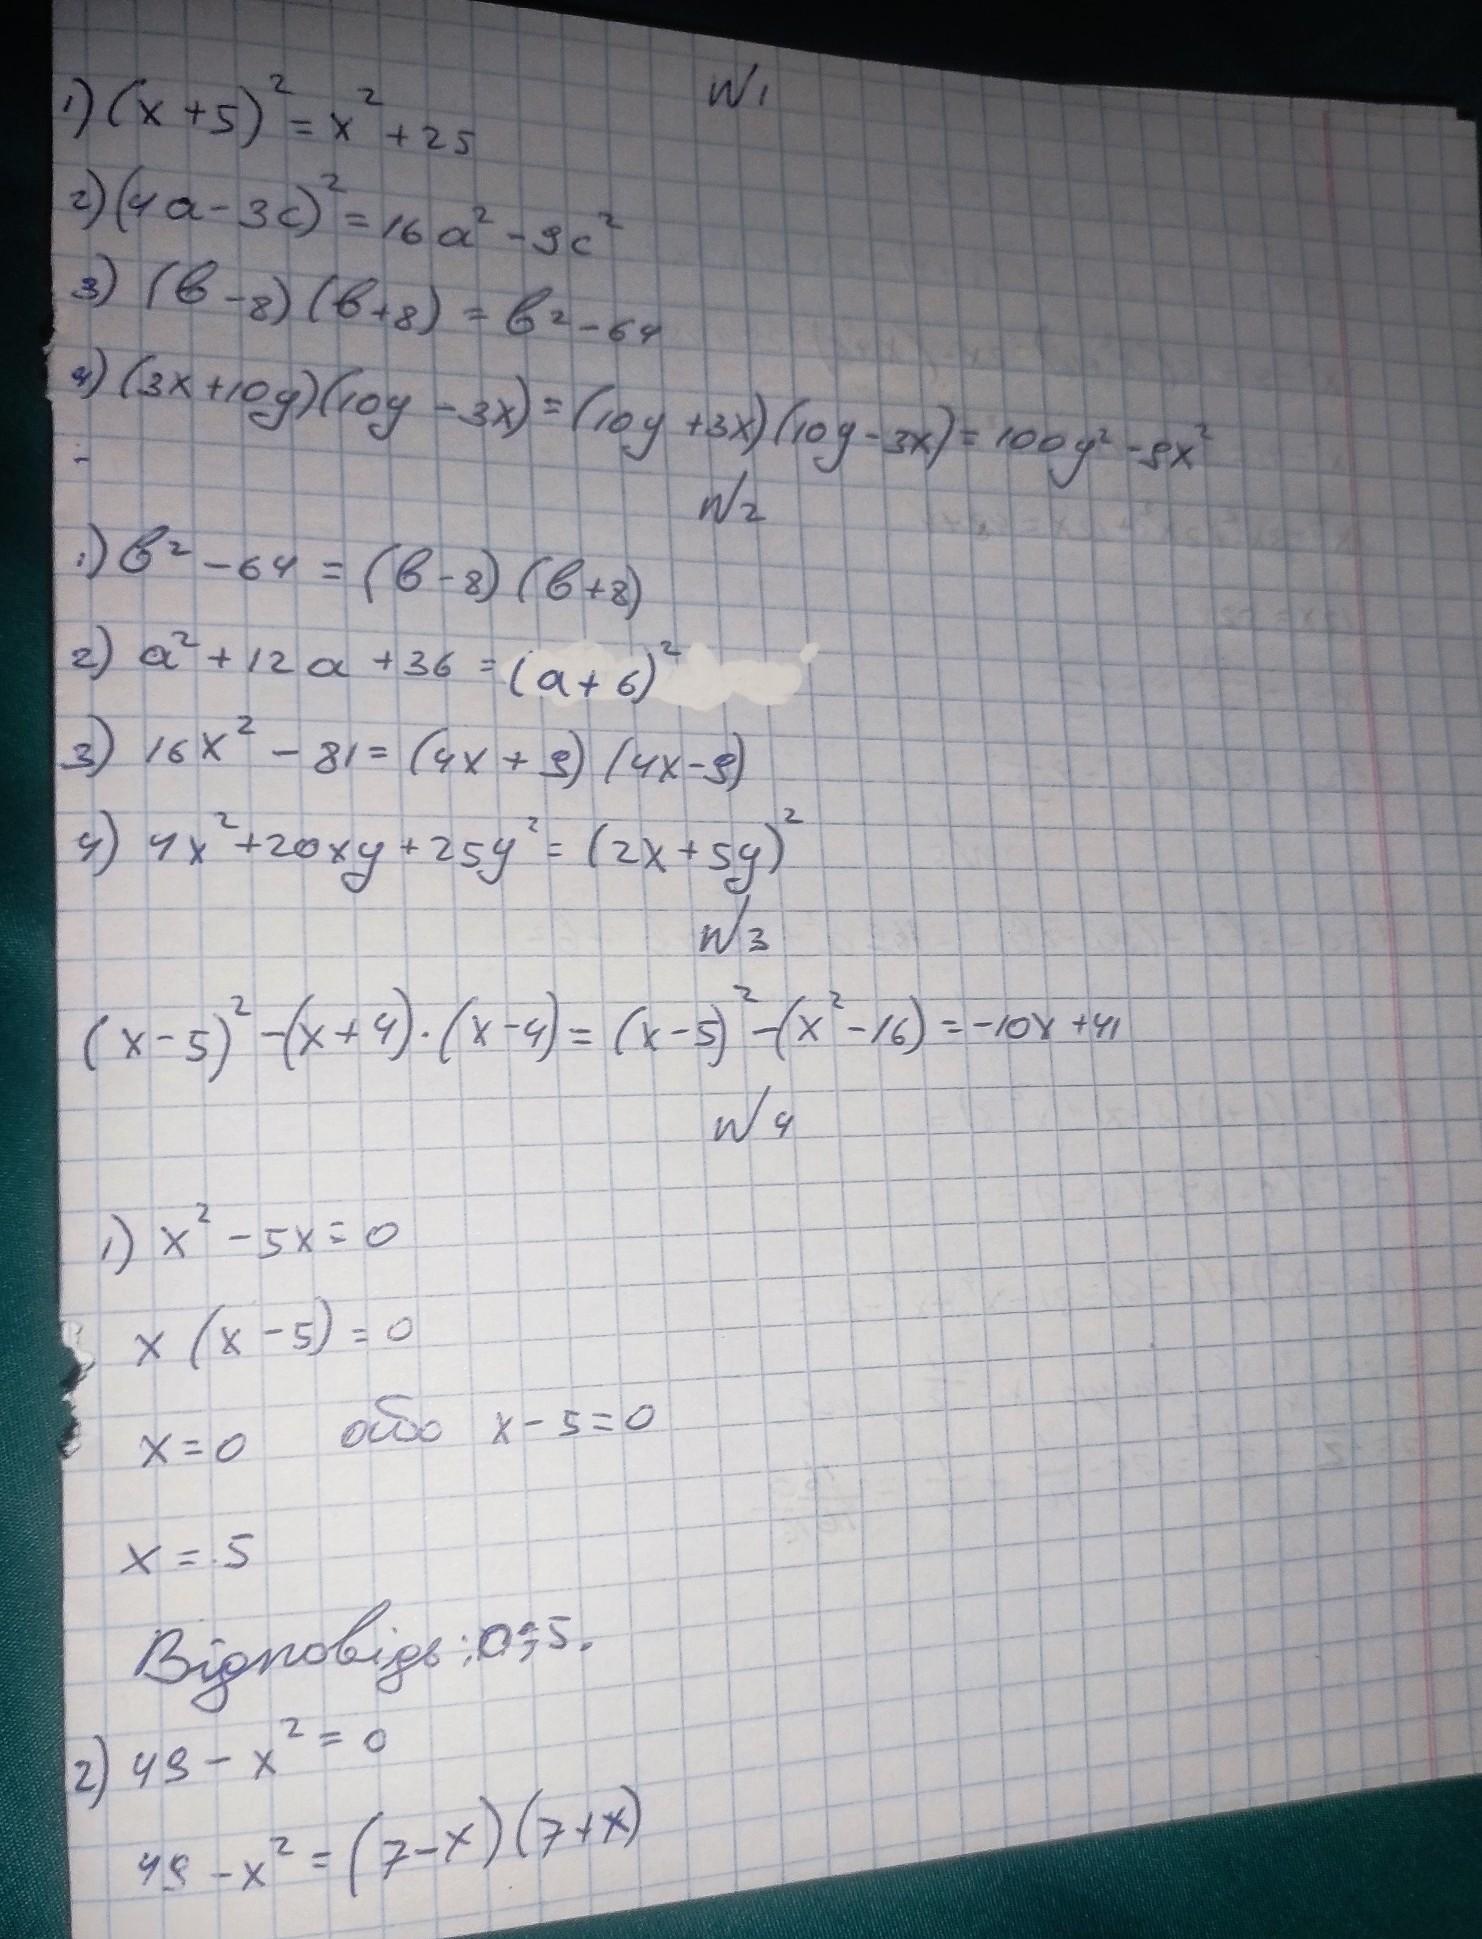 N1
1) (x+5)² = x² + 25
2) (4a - 3c)² = 16a² - 9c²
3) (в - 8)(в + 8) = в² - 64
4) (3x + 10y)(10y - 3x) = (10y + 3x)(10y - 3x) = 100y² - 9x²
N2
1) в² - 64 = (в - 8)(в + 8)
2) a² + 12a + 36 = (a + 6)²
3) 16x² - 81 = (4x + 9)(4x - 9)
4) 4x² + 20xy + 25y² = (2x + 5y)²
N3
(x - 5)² - (x + 4)·(x - 4) = (x - 5)² - (x² - 16) = -10x + 41
N4
1) x² - 5x = 0
x(x - 5) = 0
x = 0 або x - 5 = 0
x = 5
Відповідь: 0; 5.
2) 49 - x² = 0
49 - x² = (7 - x)(7 + x)